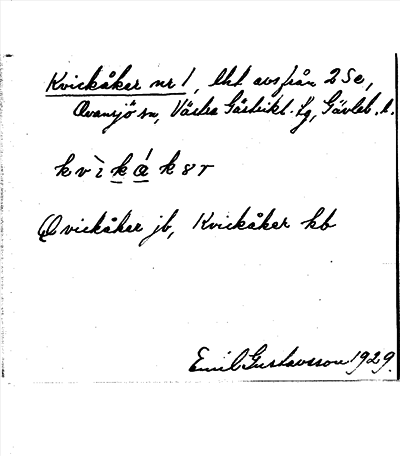 Kvickåker nr 1, lht avs från 2 Se,
Ovansjö sn, Västra Gästrikl. tg, Gävleb. l.
kvìkákər
Qvickåker jb, Kvickåker kb
Emil Gustavsson 1929.